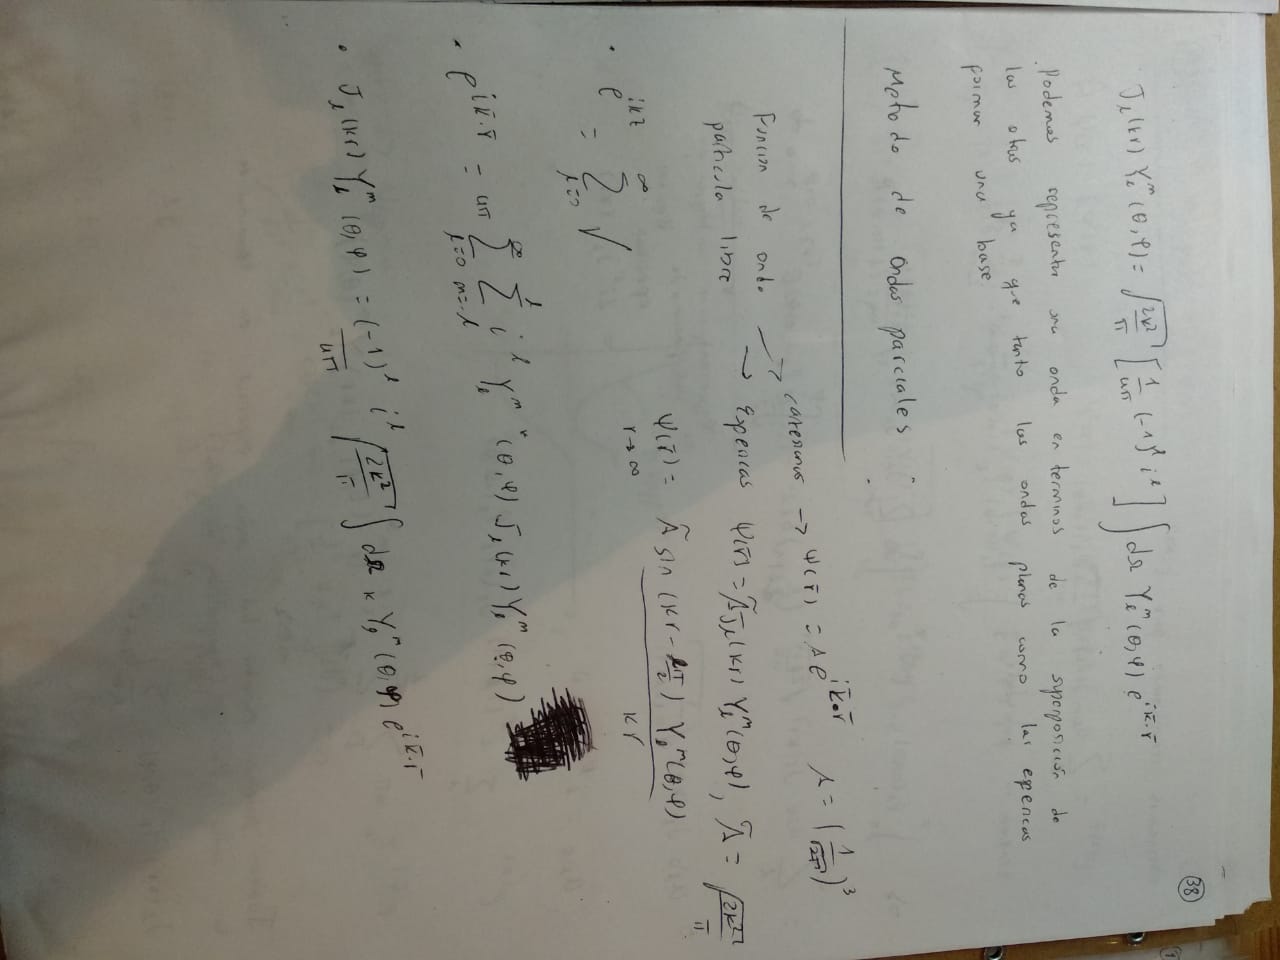 38
J_l(kr) Y_l^m(θ,φ) = √(2k²/π) [1/4π (-1)^l i^l] ∫ dΩ Y_l^m(θ,φ) e^{i k̄·r̄}
Podemos representar una onda en terminos de la superposición de
las otras ya que tanto las ondas planas como las esfericas
forman una base
Metodo de ondas parciales
Funcion de onda → cartesianas → Ψ(r̄) = A e^{i k̄·r̄} A = (1/√2π)³
particula libre → Esfericas Ψ(r̄) = Ã J_l(kr) Y_l^m(θ,φ), Ã = √(2k²/π)
Ψ(r̄) = Ã sin(kr - lπ/2) Y_l^m(θ,φ) / kr
r→∞
• e^{ikz} = Σ_{l=0}^∞ √
• e^{i k̄·r̄} = 4π Σ_{l=0}^∞ Σ_{m=-l}^l i^l Y_l^m*(θ,φ) J_l(kr) Y_l^m(θ,φ)
• J_l(kr) Y_l^m(θ,φ) = (-1)^l i^l / 4π √(2k²/π) ∫ dΩ_k Y_l^m(θ,φ) e^{i k̄·r̄}